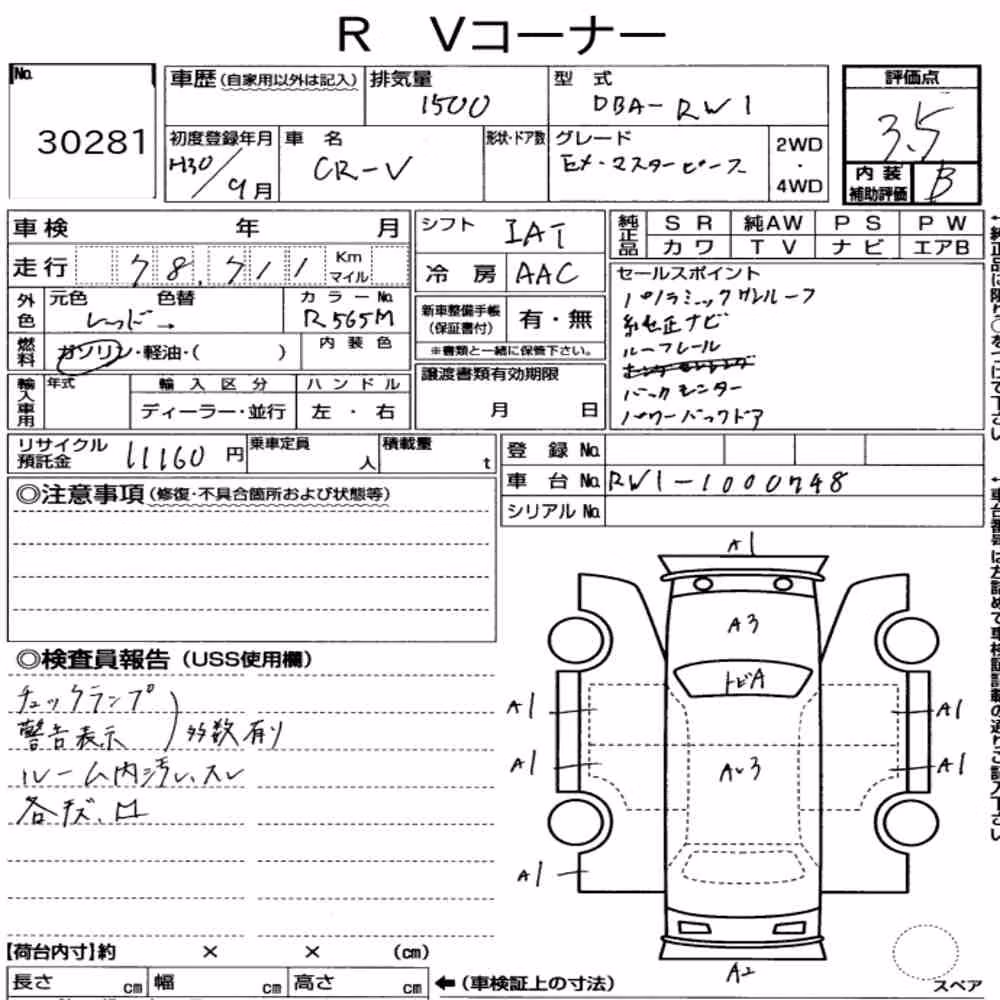 R Vコーナー
No. 30281
車歴(自家用以外は記入) 排気量 1500 型 式 DBA-RW1 評価点 3.5
初度登録年月 H30/9月 車 名 CR-V 形状・ドア数 グレード EX・マスターピース 2WD・4WD
内装補助評価 B
車検 年 月
走行 78,711 Km マイル
シフト IAT
冷 房 AAC
純正品 SR 純AW PS PW
カワ TV ナビ エアB
外色 元色 レッド 色替 → カラーNo. R565M
燃料 ガソリン・軽油・( ) 内装色
新車整備手帳(保証書付) 有・無
※書類と一緒に保管下さい。
セールスポイント
パノラミックサンルーフ
純正ナビ
ルーフレール
バックモニター
パワーバックドア
輸入車用 年式 輸入区分 ハンドル
ディーラー・並行 左・右
譲渡書類有効期限
月 日
リサイクル預託金 11160円 乗車定員 人 積載量 t
登 録 No.
車 台 No. RW1-1000748
シリアルNo.
◎注意事項(修復・不具合箇所および状態等)
◎検査員報告(USS使用欄)
チェックランプ
警告表示 )多数有り
ルーム内汚れ、スレ
各キズ、凹
A1
A3
トビA
A1 A1
A1 A1
A3
A1
A2
【荷台内寸】約 × × (cm)
長さ cm 幅 cm 高さ cm ←(車検証上の寸法)
スペア